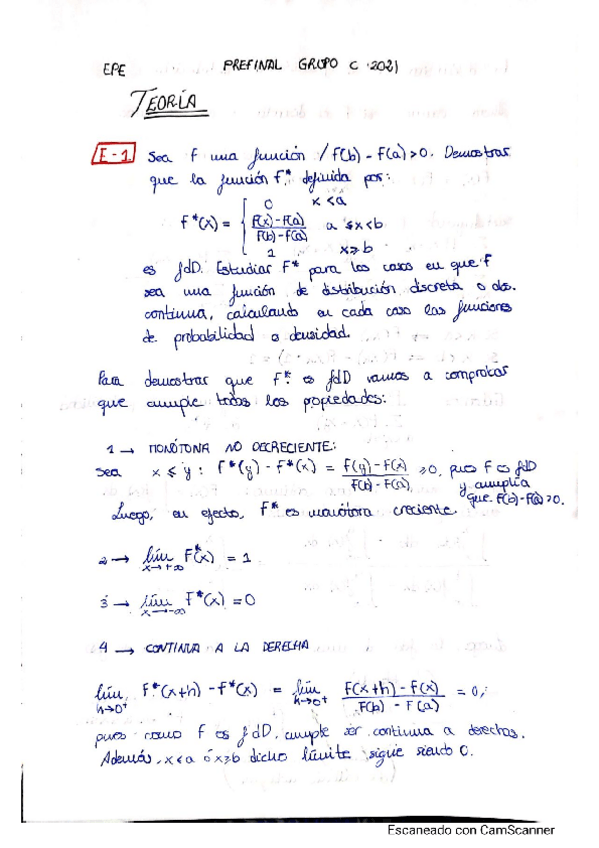 EPE PREFINAL GRUPO C 2021
TEORÍA
E-1 Sea F una función / F(b) - F(a) > 0. Demostrar
que la función F* definida por:
0 x < a
F*(x) = F(x)-F(a) / F(b)-F(a) a ≤ x < b
1 x ≥ b
es fdD. Estudiar F* para los casos en que F
sea una función de distribución discreta o abs.
continua, calculando en cada caso las funciones
de probabilidad o densidad.
Para demostrar que F* es fdD vamos a comprobar
que cumple todas las propiedades:
1 → MONÓTONA NO DECRECIENTE:
Sea x ≤ y : F*(y) - F*(x) = F(y) - F(x) / F(b) - F(a) ≥ 0, pues F es fdD
y cumplía
que F(b)-F(a) > 0.
Luego, en efecto, F* es monótona creciente.
2 → lím x→+∞ F*(x) = 1
3 → lím x→-∞ F*(x) = 0
4 → CONTINUA A LA DERECHA
lím h→0⁺ F*(x+h) - F*(x) = lím h→0⁺ F(x+h) - F(x) / F(b) - F(a) = 0,
pues como F es fdD, cumple ser continua a derechas.
Además, x < a ó x ≥ b dicho límite sigue siendo 0.
Escaneado con CamScanner